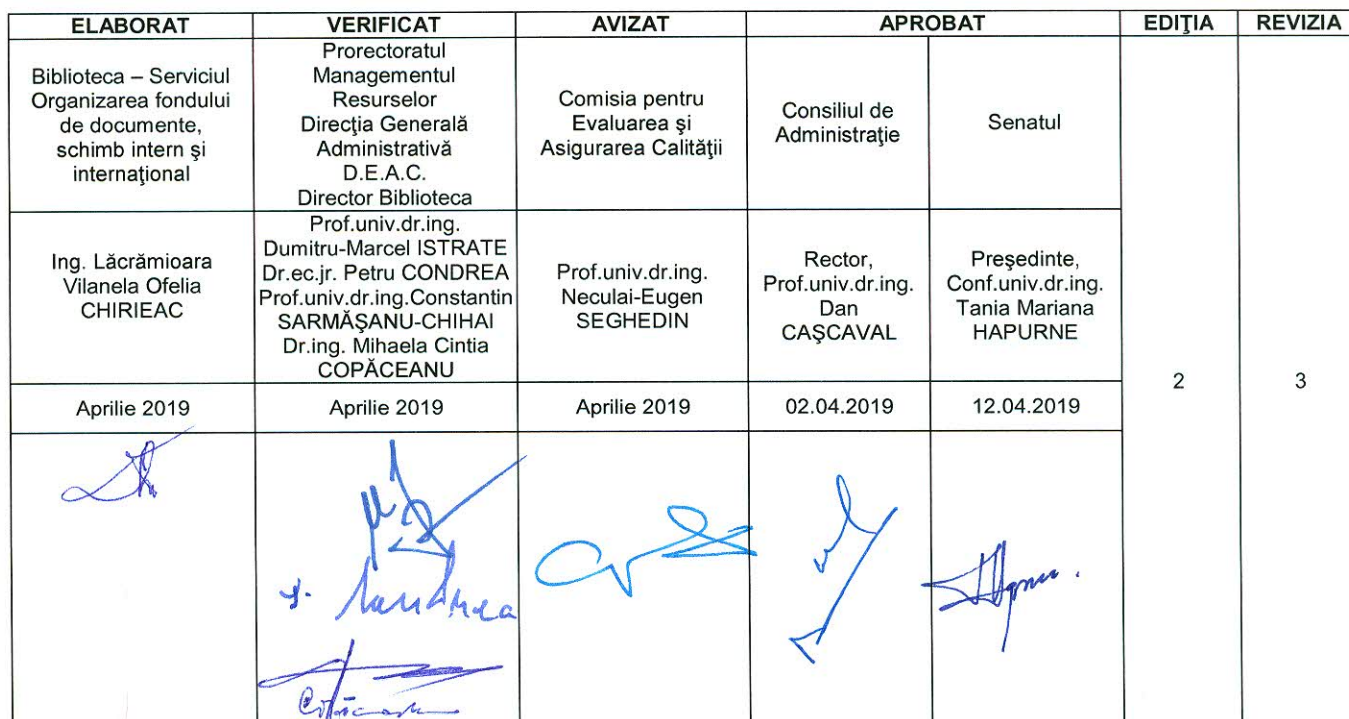 ELABORAT VERIFICAT AVIZAT APROBAT EDIŢIA REVIZIA
Biblioteca – Serviciul
Organizarea fondului
de documente,
schimb intern şi
internaţional
Prorectoratul
Managementul
Resurselor
Direcţia Generală
Administrativă
D.E.A.C.
Director Biblioteca
Comisia pentru
Evaluarea şi
Asigurarea Calităţii
Consiliul de
Administraţie
Senatul
Ing. Lăcrămioara
Vilanela Ofelia
CHIRIEAC
Prof.univ.dr.ing.
Dumitru-Marcel ISTRATE
Dr.ec.jr. Petru CONDREA
Prof.univ.dr.ing.Constantin
SARMĂŞANU-CHIHAI
Dr.ing. Mihaela Cintia
COPĂCEANU
Prof.univ.dr.ing.
Neculai-Eugen
SEGHEDIN
Rector,
Prof.univ.dr.ing.
Dan
CAŞCAVAL
Preşedinte,
Conf.univ.dr.ing.
Tania Mariana
HAPURNE
2
3
Aprilie 2019 Aprilie 2019 Aprilie 2019 02.04.2019 12.04.2019